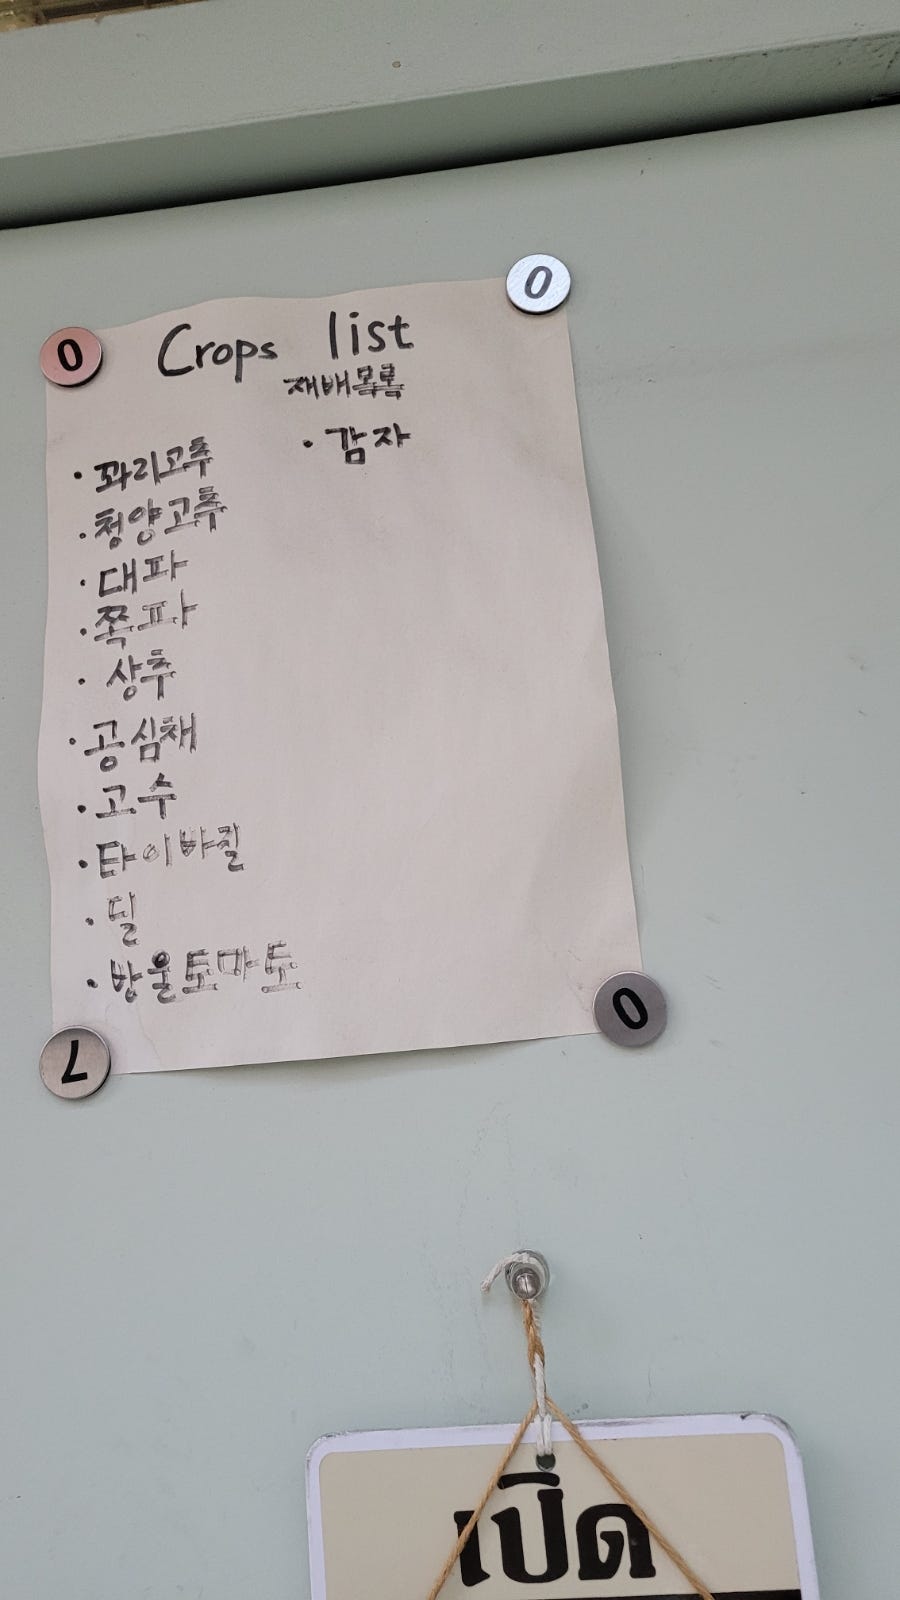 Crops list
재배목록
· 꽈리고추
· 청양고추
· 대파
· 쪽파
· 상추
· 공심채
· 고수
· 타이바질
· 딜
· 방울토마토
· 감자
0
0
7
0
เปิด